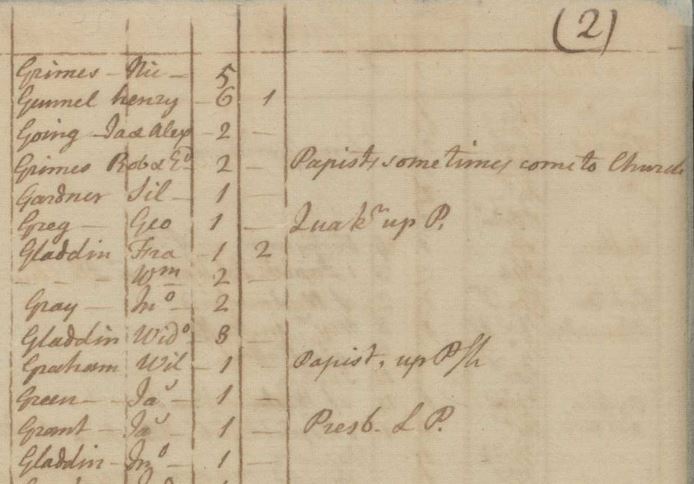 (2)
Grimes - Nic - 5
Gunnel henry - 6 1
Going Ja & Alex - 2 -
Grimes Rob & Ed - 2 - Papists sometimes come to Church
Gardner Sil - 1 -
Greg - Geo 1 - Quakr up P.
Gladdin Fra - 1 2
- - Wm - 2 -
Gray - Jno - 2
Gladdin Wido 8 -
Graham Wil - 1 - Papist, up Psh
Green - Jas - 1 -
Grant - Jas - 1 - Presb. L P.
Gladdin - Jno - 1 -